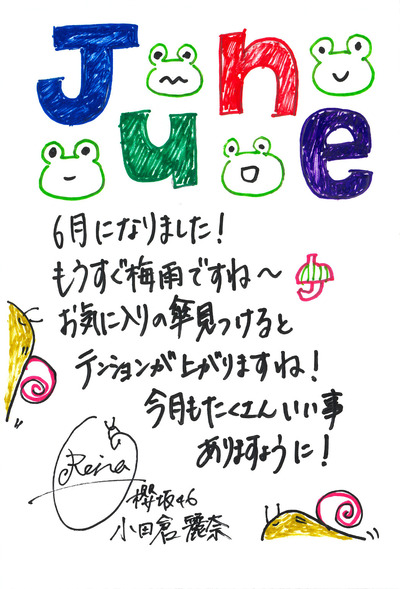 June
6月になりました!
もうすぐ梅雨ですね〜
お気に入りの傘見つけると
テンションが上がりますね!
今月もたくさんいい事
ありますように!
Reina
櫻坂46
小田倉麗奈